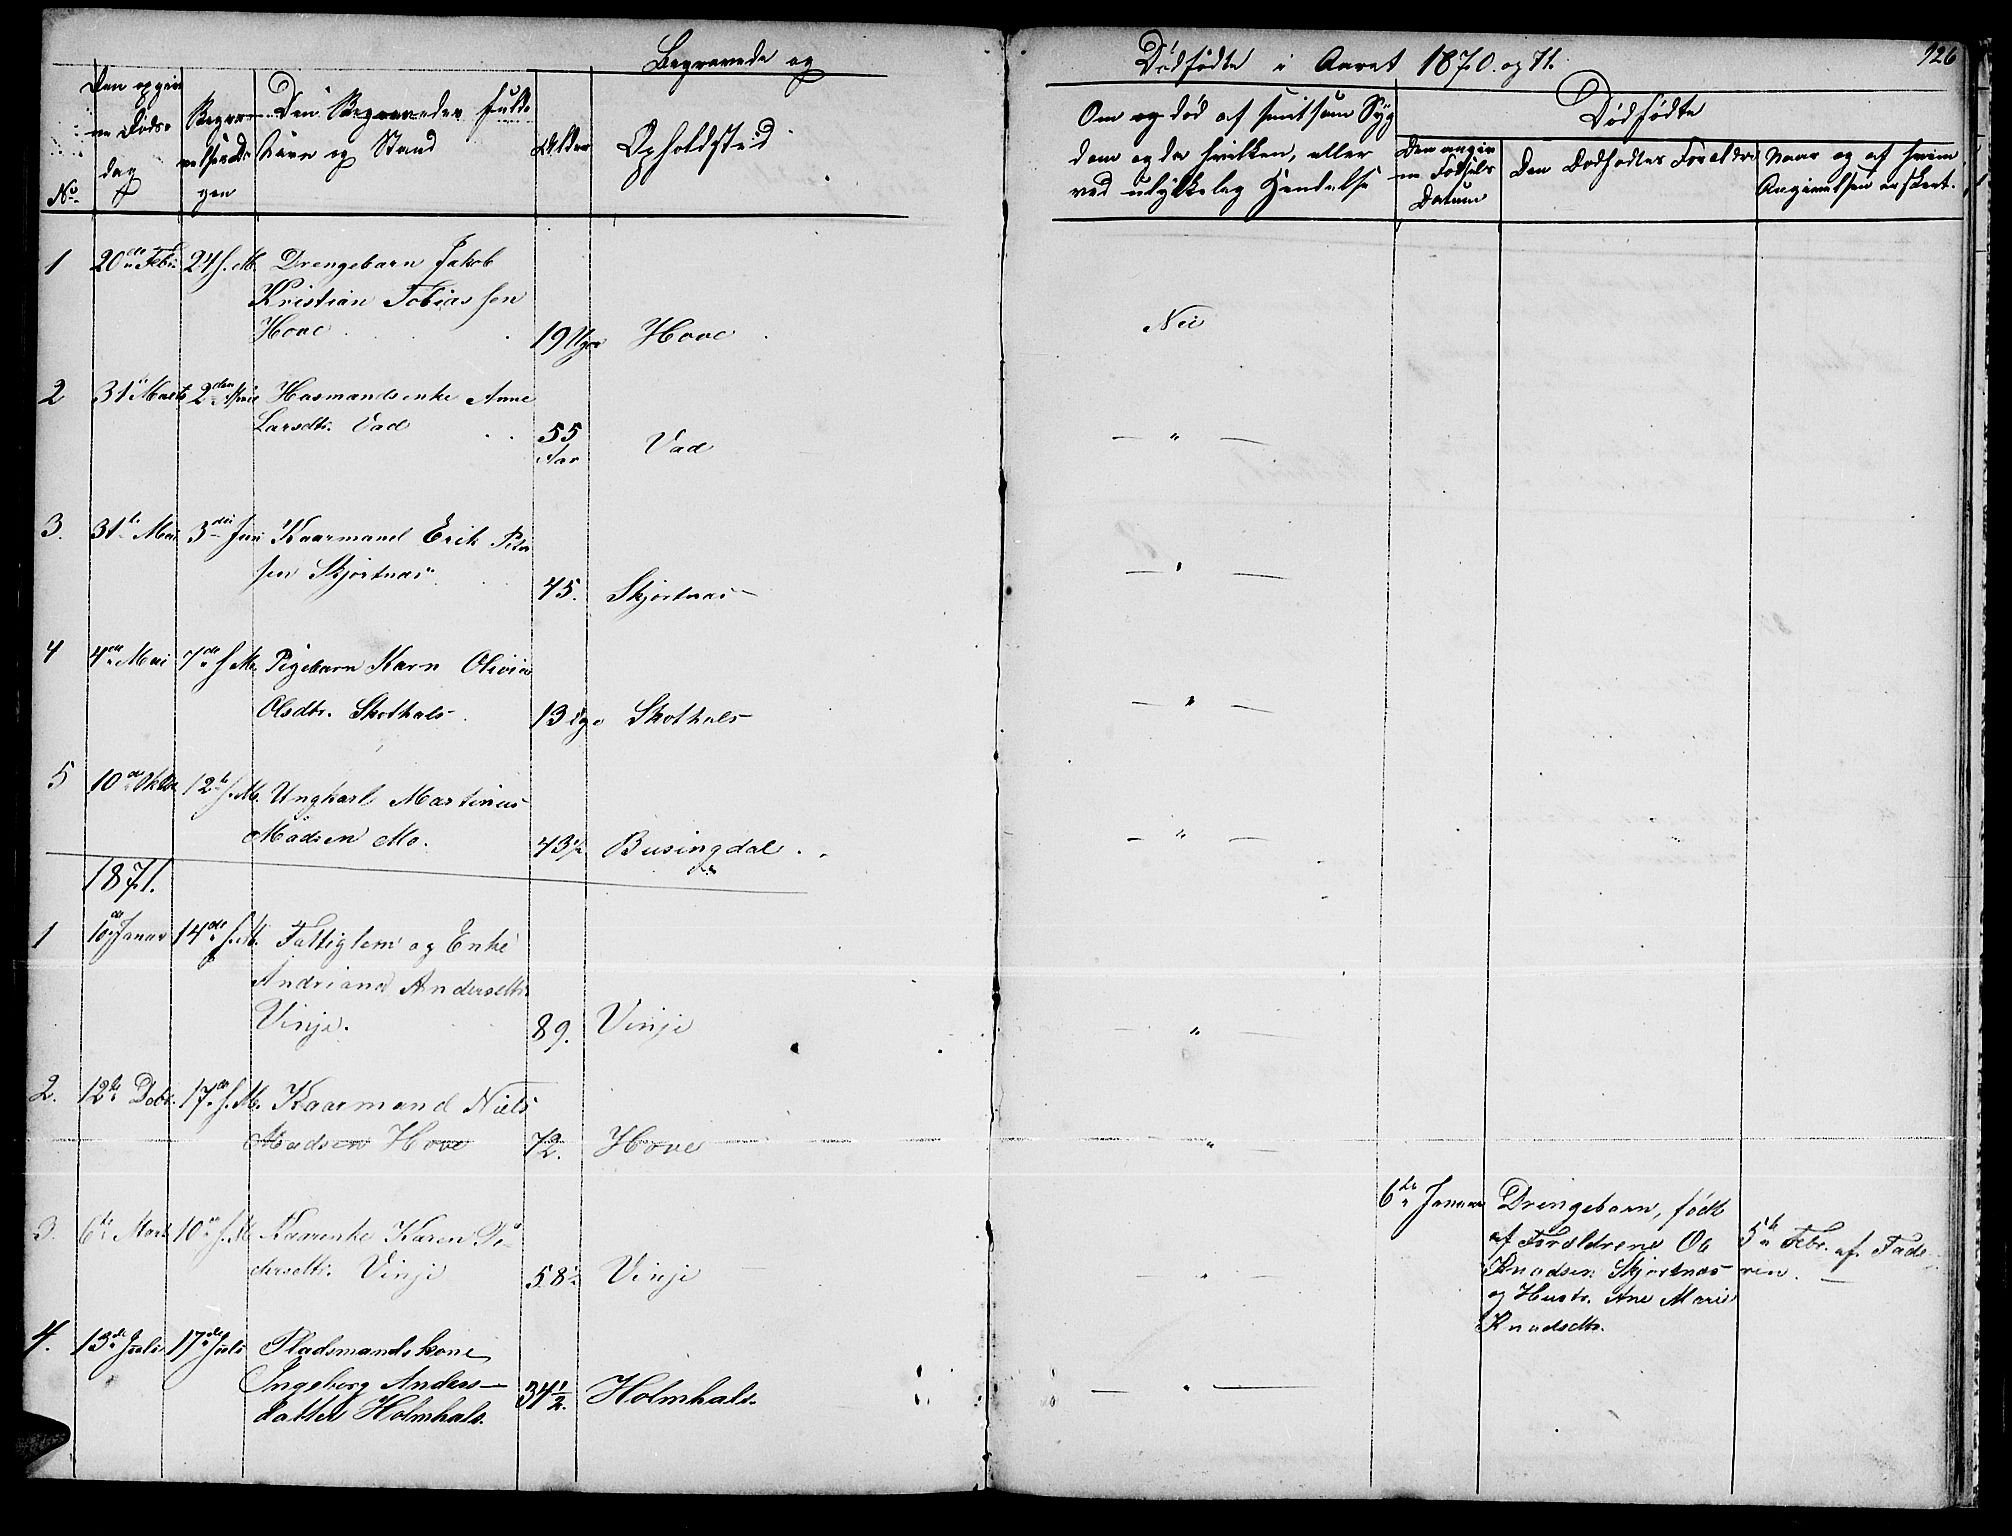 Begravede og
Dødfødte i Aaret 1870. og 71.
126
No.
Den opgivne Døds-dag
Begravelsesdagen
Den Begravedes fulde Navn og Stand
Alder
Opholdsted
Om død af smitsom Sygdom og da hvilken, eller ved ulykkelig Hendelse
Dødfødte
Den angivne Fødsels Datum
Den Dødfødtes Foreldre
Naar og af hvem Angivelsen er skeet.
1 20de Febr. 24 s. M. Drengebarn Jakob
Kristian Tobiassen
Hove 19 Uger Hove Nei
2 31te Marts 2den April Husmandsenke Anne
Larsdtr. Vad 55 Aar Vad — " —
3. 31te Mai 3die Juni Kaarmand Erik Peter
sen Skjortnæs 45. Skjortnæs — " —
4 4de Mai 7de s. M. Pigebarn Karn Olivia
Olsdtr. Skothals 13 Uger Skothals — " —
5 10de Oktbr 12te s. M. Ungkarl Martinus
Madsen Mo. 43½ Busingdal — " —
1871.
1 10de Januar 14de s. M. Fattiglem og Enke
Andriane Andersdtr.
Vinje. 89. Vinje — " —
2. 12te Debr. 17de s. M. Kaarmand Niels
Madsen Hove 72. Hove — " —
3. 6te Marts 10de s. M. Kaarenke Karen Pe-
dersdtr. Vinje 58½ Vinje — " —
6te Januar Drengebarn, født
af Foreldrene Ole
Knudsen Skjortnæs
og Hustr. Ane Marie
Knudsdtr.
5te Febr. af Fade
ren. —
4. 13de Juli 17de Juli Pladsmandskone
Ingeborg Anders-
datter Holmhals. 34½. Holmhals. — " —